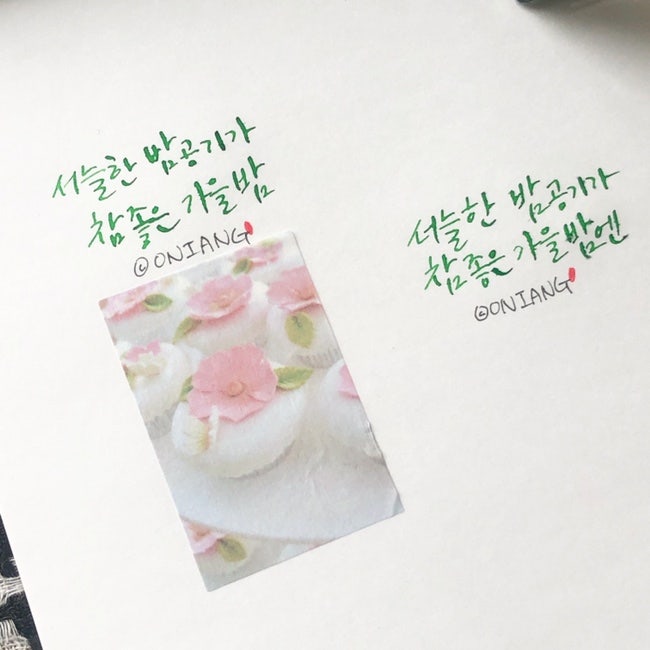 서늘한 밤공기가
참좋은 가을밤
©ONIANG
서늘한 밤공기가
참좋은 가을밤엔
©ONIANG